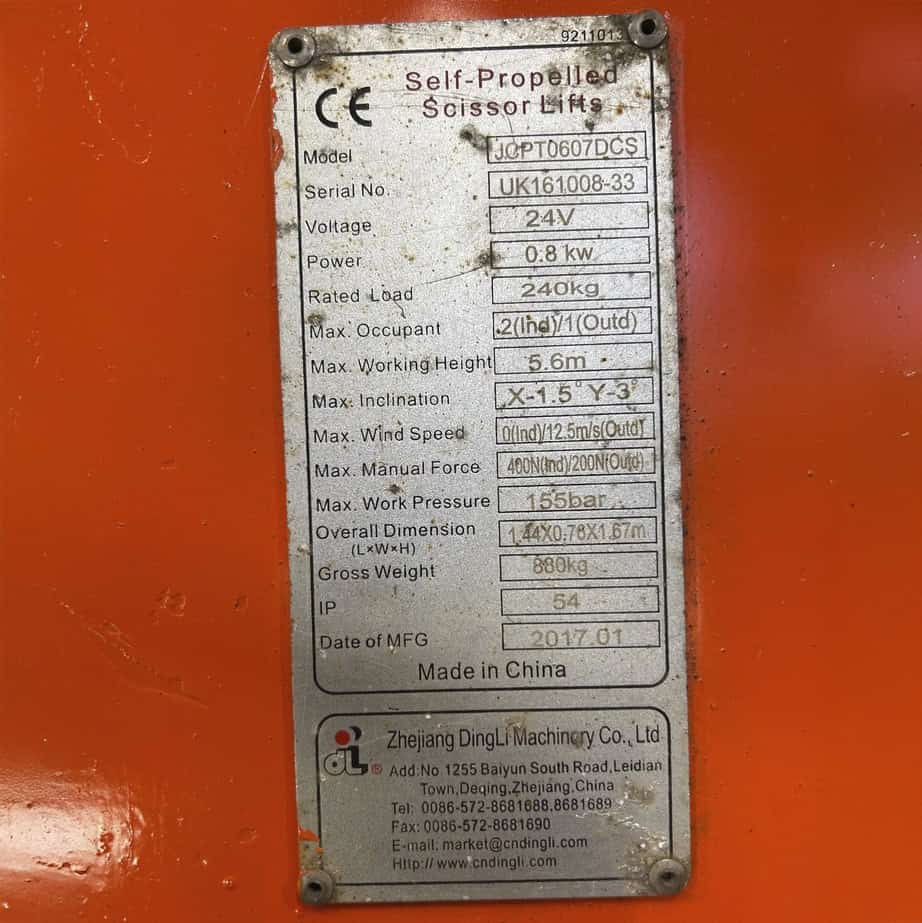 9211013
CE
Self-Propelled
Scissor Lifts
Model JCPT0607DCS
Serial No. UK161008-33
Voltage 24V
Power 0.8 kw
Rated Load 240kg
Max. Occupant 2(Ind)/1(Outd)
Max. Working Height 5.6m
Max. Inclination X-1.5° Y-3°
Max. Wind Speed 0(Ind)/12.5m/s(Outd)
Max. Manual Force 400N(Ind)/200N(Outd)
Max. Work Pressure 155bar
Overall Dimension 1.44X0.76X1.67m
(L×W×H)
Gross Weight 880kg
IP 54
Date of MFG 2017.01
Made in China
dL ® Zhejiang DingLi Machinery Co., Ltd
Add:No 1255 Baiyun South Road,Leidian
Town,Deqing,Zhejiang,China
Tel: 0086-572-8681688,8681689
Fax: 0086-572-8681690
E-mail: market@cndingli.com
Http:// www.cndingli.com